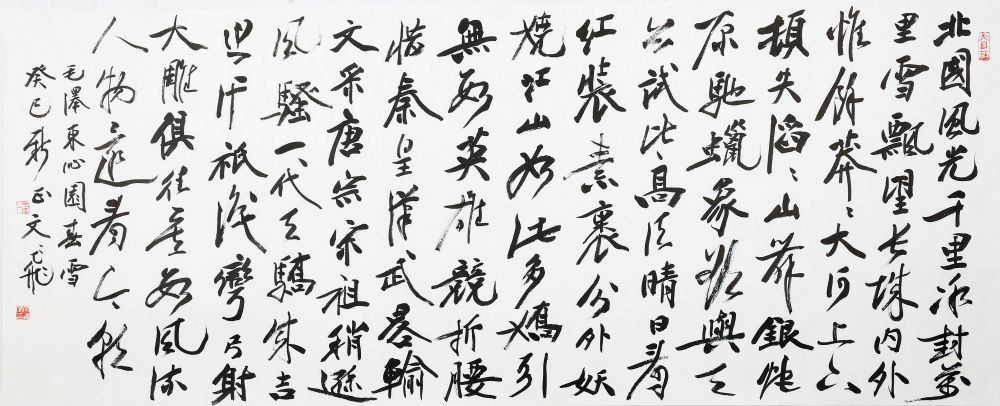 北國風光千里冰封萬
里雪飄望長城内外
惟餘莽〻大河上下
頓失滔〻山舞銀蛇
原馳蠟象欲與天
公試比高須晴日看
紅裝素裹分外妖
嬈江山如此多嬌引
無數英雄競折腰
惜秦皇漢武畧輸
文采唐宗宋祖稍遜
風騷一代天驕成吉
思汗祇識彎弓射
大雕俱往矣數風流
人物還看今朝
毛澤東沁園春雪
癸巳新正文飛